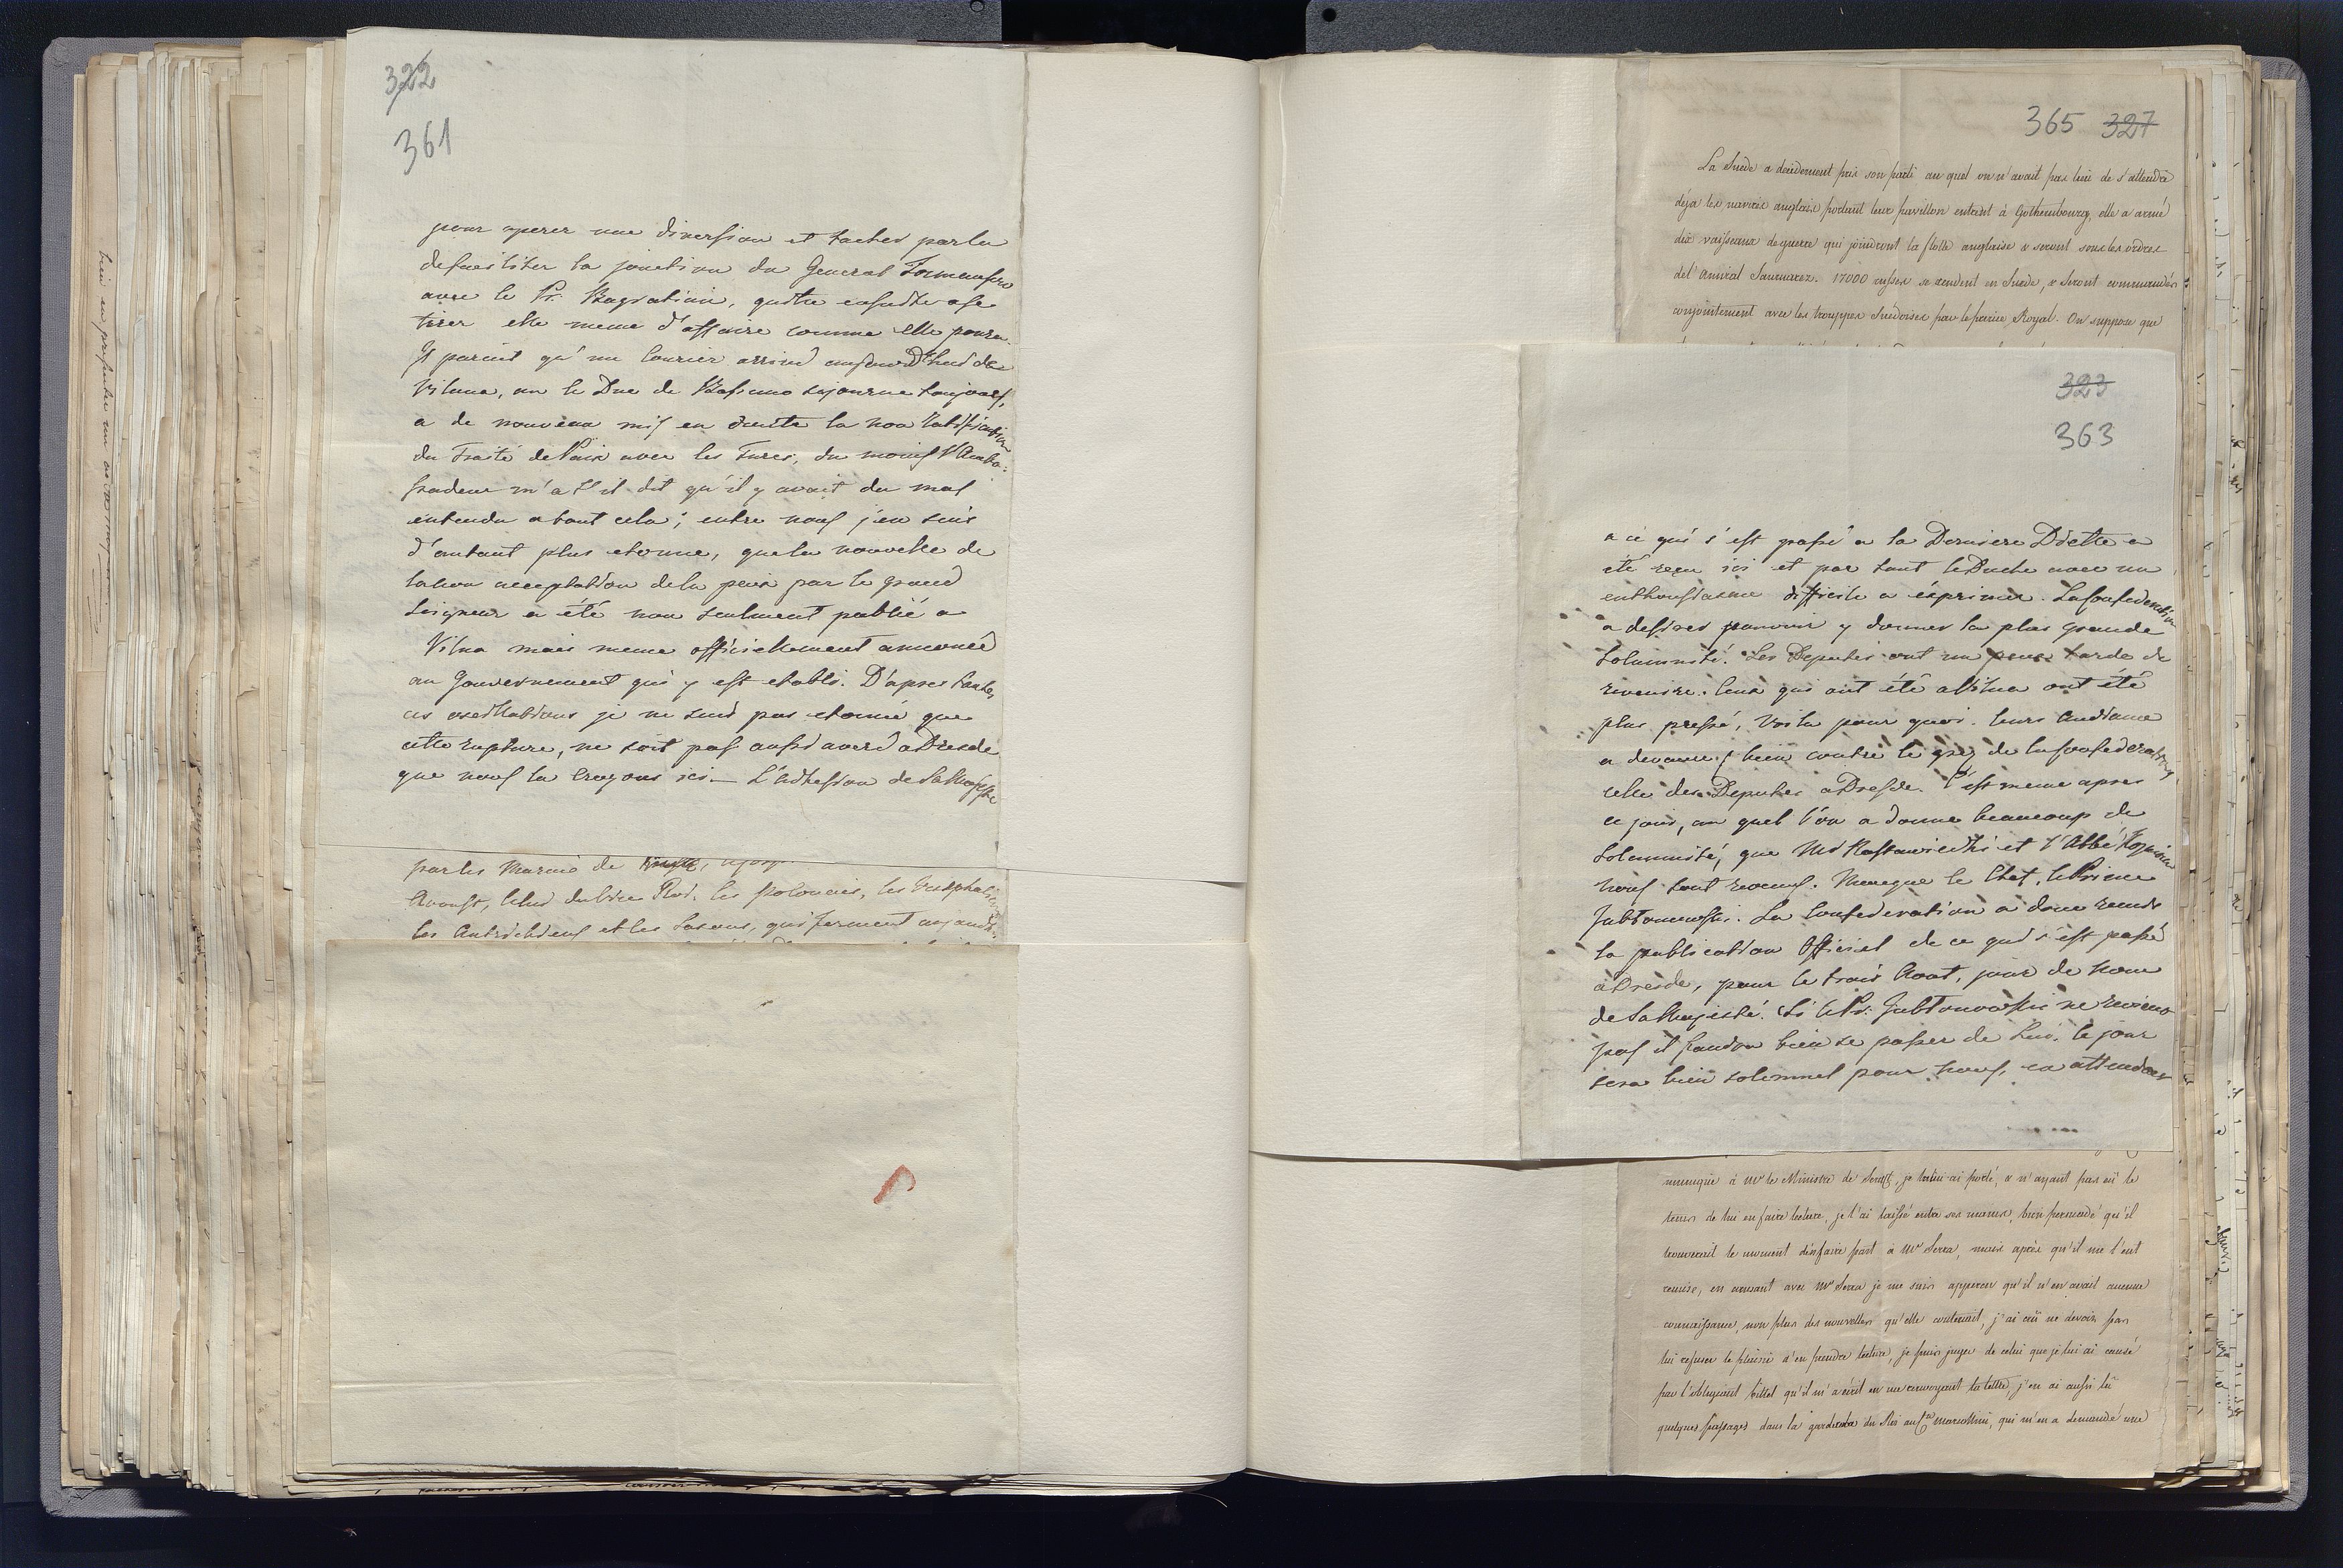 322
361
pour operer une diversion et tacher par la
de faciliter la jonction du General Tormansow
avec le Pr. Bagration, quitte ensuite a se
tirer elle meme d'affaire comme elle poura.
Il parait qu'un Courier arrivé aujourd'hui de
Vilnna, ou le Duc de Bassano sejourne toujours,
a de nouveau mis en doute la non Ratification
du Traité de Paix avec les Turcs, du moins l'Amba-
ssadeur m'a t'il dit qu'il y avait du mal
entendu a tout cela; entre nous j'en suis
d'autant plus etonné, que la nouvelle de
la non acceptation de la paix par le grand
Seigneur a été non seulement publié a
Vilna mais meme officiellement annoncé
au Gouvernement qui y est etabli. D'apres toutes
ces oscillations je ne suis pas etonné que
cette rupture, ne soit pas aussi averé a Dresde
que nous la Croyons ici — L'adhesion de Sa Majesté
par les Marins de
les Polonais, les Vestphaliens
les Autrichiens et les Saxons, qui forment aujourd-
365 327
La Suede a decidement pris son parti au quel on n'avait pas lieu de s'attendre
déja les navires anglais portant leur pavillon entrent à Gothembourg, elle a armé
dix vaisseaux de guerre qui joindront la flotte anglaise & seront sous les ordres
de l'Amiral Saumarez. 17000 russes se rendent en Suede, & seront commandés
conjointement avec les trouppes Suédoises par le prince Royal. On suppose que
323
363
a ce qui s'est passé a la Derniere Diette a
été reçu ici et par tout le Duché avec un
enthousiasme difficile a éxprimer. La Confederation
a desirer pouvoir y donner la plus grande
Solemnité. Les Deputés ont un peu tardé de
revenire. Ceux qui ont été a Vilna ont été
plus pressé, Voila pour quoi leurs Audiance
a devancé bien contre le gré de la Confederation,
celle des Deputés a Dresde. C'est meme apres
ce jour, au quel l'on a donné beaucoup de
Solemnité, que Mr Rastawiecki et l'Abbé
nous sont revenus. Manque le Chef, le Prince
Jabłonowski. La Confederation a donc remis
la publication Officiel de ce qui s'est passé
à Dresde, pour le trois Aout, jour de nom
de Sa Majesté. Si le Pr. Jabłonowski ne revient
pas il faudra bien se passer de Lui, le jour
sera bien solemnel pour nous, en attendant
munique à Mr le Ministre de Senfft, je la lui ai porté, & n'ayant pas eû le
tems de lui en faire lecture, je l'ai laissé entre ses mains, bien persuadé qu'il
trouverait le moment d'en faire part à Mr Serra, mais après qu'il me l'eut
remise, en causant avec Mr Serra je me suis apperçu qu'il n'en avait aucune
connaissance, non plus des nouvelles qu'elle contenait, j'ai crû ne devoir pas
lui refuser le plaisir d'en prendre lecture, je puis juger de celui que je lui ai causé
par l'obligeant billet qu'il m'a écrit en me renvoyant ta lettre, j'en ai aussi lû
quelques passages dans la garderobe du Roi au Cte Marcollini, qui m'en a demandé une